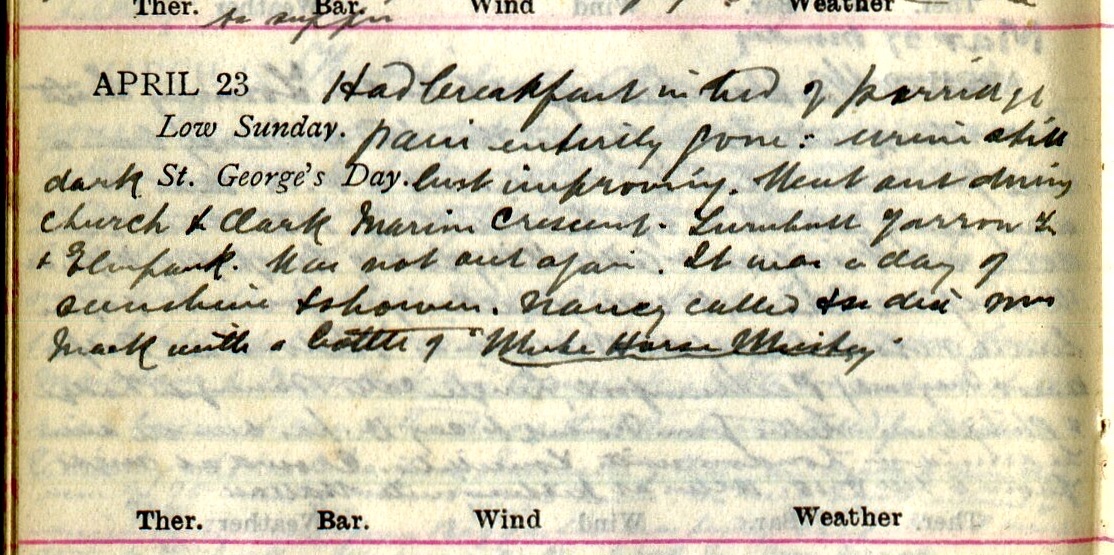 Ther. Bar. Wind Weather
to supper
APRIL 23 Had breakfast in bed of porridge
Low Sunday. pain entirely gone: urine still
dark St. George's Day. but improving. Went out during
church to Clark Marine Crescent. Turnbull Yarrow
& Elmpark. Was not out again. It was a day of
sunshine & showers. Nancy called & so did Mrs
Mack with a bottle of "White Horse Whisky"
Ther. Bar. Wind Weather